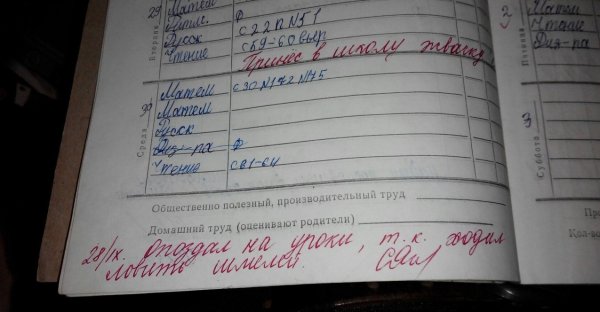 29 Матем
Ф
Русск с 22 п N 51
Чтение с 59-60 выр
Вторник
Принёс в школу жвачку
30 Матем с 30 N 172 N 175
Матем
Русск
Среда
Физ-ра Ф
Чтение с 61-64
Общественно полезный, производительный труд
Домашний труд (оценивают родители)
28/IX. Опоздал на уроки, т.к. ходил
ловить шмелей.
2 Матем
Чтение
Физ-ра
Пятница
3
Суббота
Кол-во